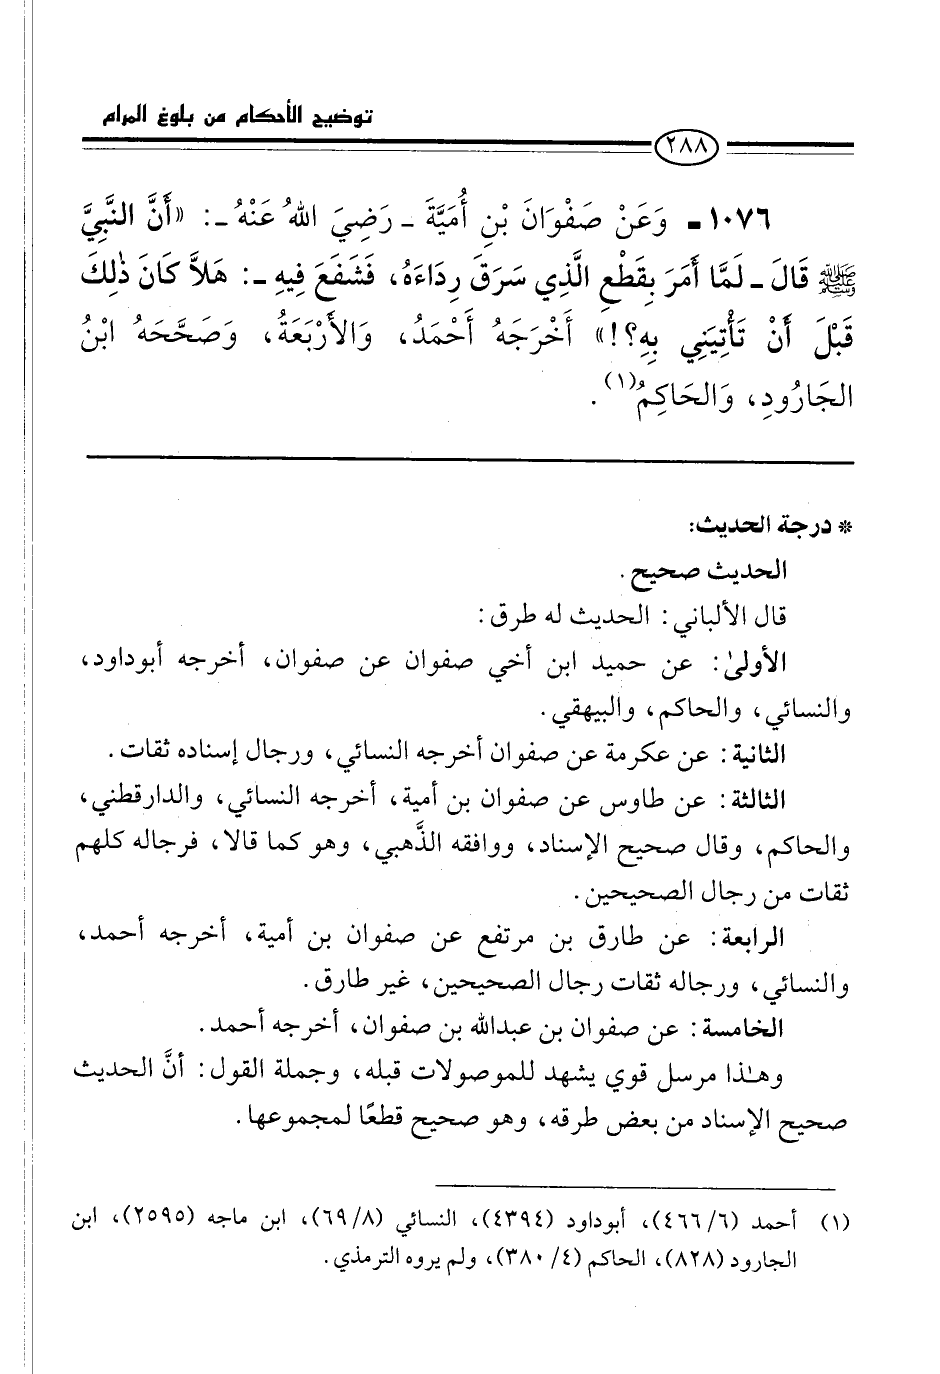 توضيح الأحكام من بلوغ المرام
٢٨٨
١٠٧٦ - وَعَنْ صَفْوَانَ بْنِ أُمَيَّةَ - رَضِيَ اللهُ عَنْهُ -: «أَنَّ النَّبِيَّ
ﷺ قَالَ - لَمَّا أَمَرَ بِقَطْعِ الَّذِي سَرَقَ رِدَاءَهُ، فَشَفَعَ فِيهِ -: هَلاَّ كَانَ ذٰلِكَ
قَبْلَ أَنْ تَأْتِيَنِي بِهِ؟!» أَخْرَجَهُ أَحْمَدُ، وَالأَرْبَعَةُ، وَصَحَّحَهُ ابْنُ
الجَارُودِ، وَالحَاكِمُ(١).
* درجة الحديث:
الحديث صحيح.
قال الألباني: الحديث له طرق:
الأولىٰ: عن حميد ابن أخي صفوان عن صفوان، أخرجه أبوداود،
والنسائي، والحاكم، والبيهقي.
الثانية: عن عكرمة عن صفوان أخرجه النسائي، ورجال إسناده ثقات.
الثالثة: عن طاوس عن صفوان بن أمية، أخرجه النسائي، والدارقطني،
والحاكم، وقال صحيح الإسناد، ووافقه الذَّهبي، وهو كما قالا، فرجاله كلهم
ثقات من رجال الصحيحين.
الرابعة: عن طارق بن مرتفع عن صفوان بن أمية، أخرجه أحمد،
والنسائي، ورجاله ثقات رجال الصحيحين، غير طارق.
الخامسة: عن صفوان بن عبدالله بن صفوان، أخرجه أحمد.
وهـٰذا مرسل قوي يشهد للموصولات قبله، وجملة القول: أنَّ الحديث
صحيح الإسناد من بعض طرقه، وهو صحيح قطعًا لمجموعها.
(١) أحمد (٤٦٦/٦)، أبوداود (٤٣٩٤)، النسائي (٦٩/٨)، ابن ماجه (٢٥٩٥)، ابن
الجارود (٨٢٨)، الحاكم (٣٨٠/٤)، ولم يروه الترمذي.